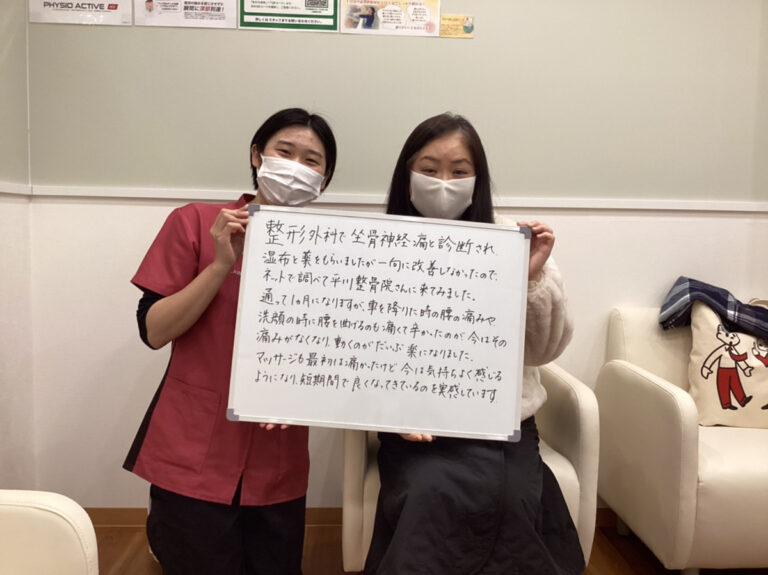 PHYSIO ACTIVE
整形外科で坐骨神経痛と診断され、
湿布と薬をもらいましたが一向に改善しなかったので、
ネットで調べて平川整骨院さんに来てみました。
通って1ヶ月になりますが、車を降りた時の腰の痛みや
洗顔の時に腰を曲げるのも痛くて辛かったのが今はその
痛みがなくなり、動くのがだいぶ楽になりました。
マッサージも最初は痛かったけど今は気持ちよく感じる
ようになり、短期間で良くなってきているのを実感しています。